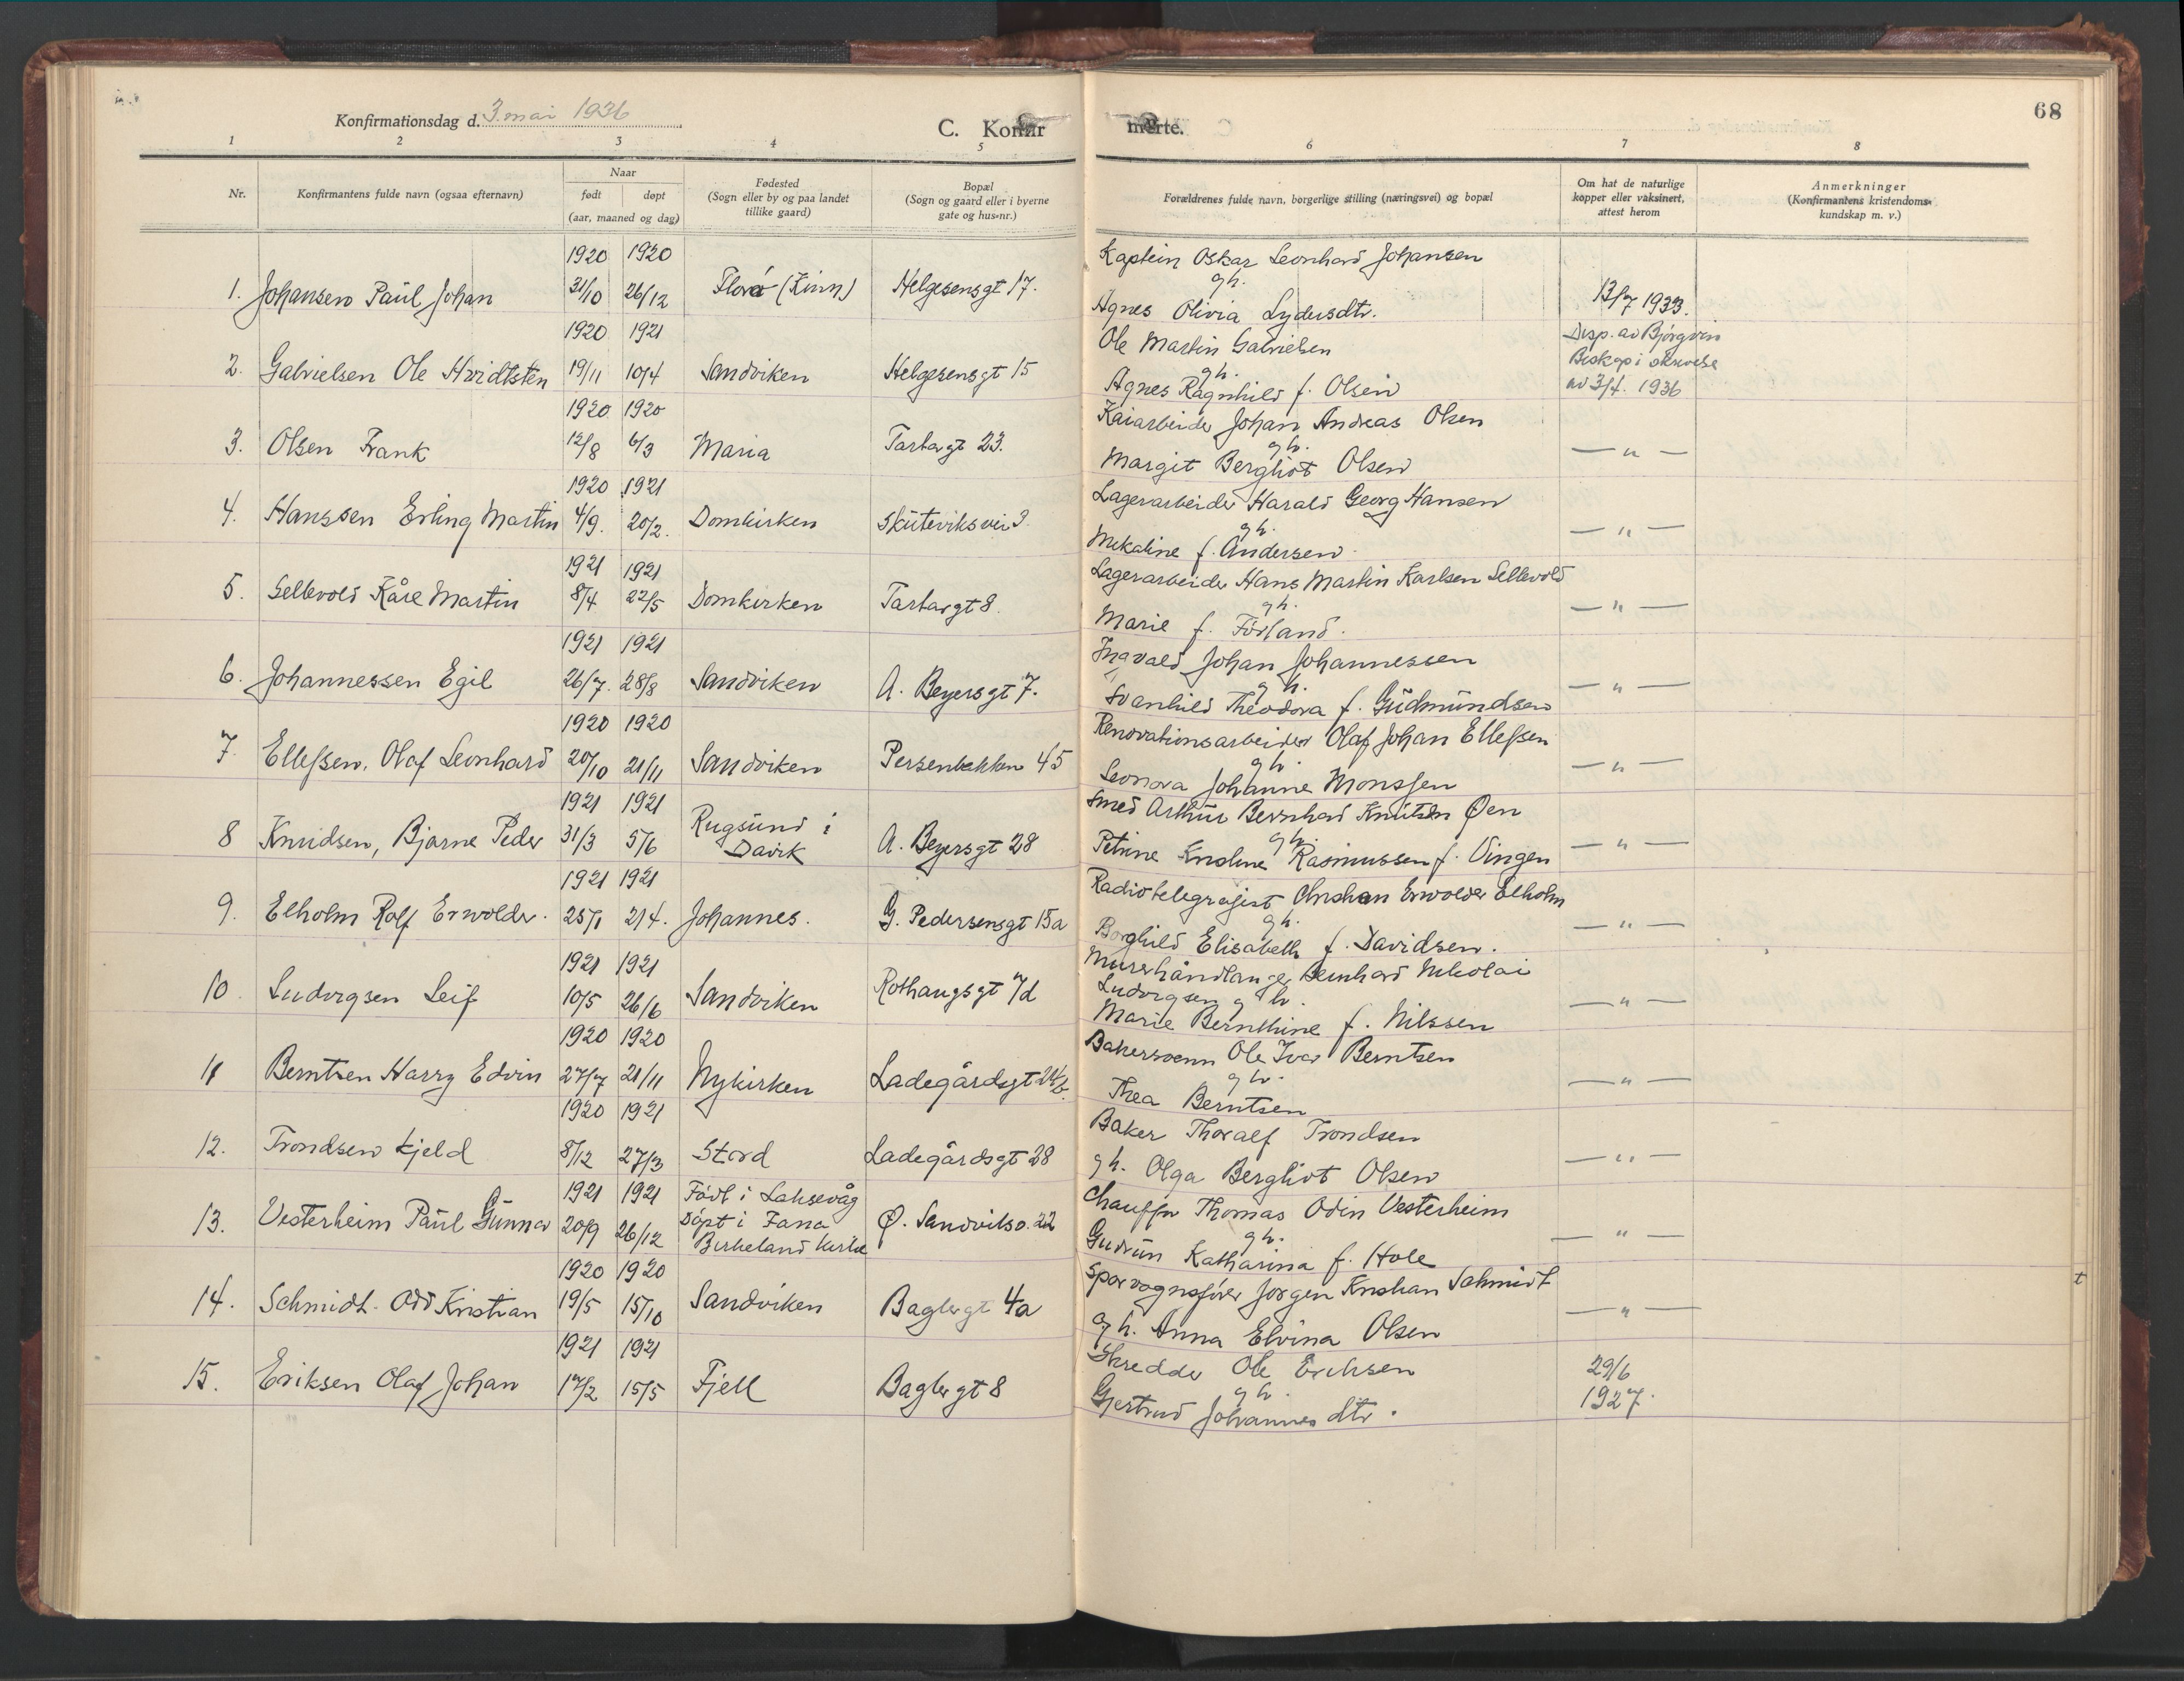 68
Konfirmationsdag d. 3. mai 1936
C. Konfir
merte.
1 2 3 4 5 6 7 8
Nr.
Konfirmantens fulde navn (ogsaa efternavn)
Naar
født døpt
(aar, maaned og dag)
Fødested
(Sogn eller by og paa landet
tillike gaard)
Bopæl
(Sogn og gaard eller i byerne
gate og hus-nr.)
Forældrenes fulde navn, borgerlige stilling (næringsvei) og bopæl
Om hat de naturlige
kopper eller vaksinert,
attest herom
Anmerkninger
(Konfirmantens kristendoms-
kundskap m. v.)
1920 1920
1. Johansen Paul Johan 31/10 26/12 Florø (Kinn) Helgesensgt 17.
Kaptein Oskar Leonhard Johansen
gh.
Agnes Olivia Lydersdtr.
13/7 1933.
1920 1921
2. Gabrielsen Ole Hvidtsten 19/11 10/4 Sandviken Helgesensgt 15
Ole Martin Gabrielsen
gh.
Agnes Ragnhild f. Olsen
Disp. av Bjørgvin
Biskop i skrivelse
av 3/4. 1936
1920 1920
3. Olsen Frank 12/8 6/3 Maria Tartargt 23.
Kaiarbeider Johan Andreas Olsen
gh.
Margit Bergliot Olsen
— " —
1920 1921
4. Hanssen Erling Martin 4/9. 20/2. Domkirken Skuteviksvei 3.
Lagerarbeider Harald Georg Hansen
gh.
Mekaline f. Andersen
— " —
1921 1921
5. Sellevold Kåre Martin 8/4 22/5 Domkirken Tartargt 8.
Lagerarbeider Hans Martin Karlsen Sellevold
gh.
Marie f. Förland.
— " —
1921 1921
6. Johannessen Egil 26/7. 28/8 Sandviken A. Beyersgt 7.
Ingvald Johan Johannessen
gh.
Svanhild Theodora f. Gudmundsen
— " —
1920 1920
7. Ellefsen, Olaf Leonhard 20/10 21/11 Sandviken Persenbakken 45
Renovationsarbeider Olaf Johan Ellefsen
gh.
Leonora Johanne Monssen
— " —
1921 1921
8 Knudsen, Bjarne Peder 31/3 5/6 Rugsund i
Davik
A. Beyersgt 28
Smed Arthur Bernhard Knutsen Øen
gh.
Petrine Kristine Rasmussen f. Vingen
— " —
1921 1921
9. Elholm Rolf Erwolder. 25/1 21/4. Johannes. G. Pedersensgt 15a
Radiotelegrafist Christian Erwolder Elholm
gh.
Borghild Elisabeth f. Davidsen.
— " —
1921 1921
10. Ludvigsen Leif 10/5 26/6 Sandviken Rothaugsgt 7d
Murerhåndlanger Bernhard Nikolai
Ludvigsen gh.
Marie Bernthine f. Nilssen
— " —
1920 1920
11 Berntsen Harry Edvin 27/7 21/11 Nykirken Ladegårdsgt 24b.
Bakersvenn Ole Ivar Berntsen
gh.
Thea Berntsen
— " —
1920 1921
12. Trondsen Kjeld 8/12 27/3 Stord Ladegårdsgt 28
Baker Thoralf Trondsen
gh. Olga Bergliot Olsen
— " —
1921 1921
13. Vesterheim Paul Gunnar 20/9 26/12 Född i Laksevåg
Döpt i Fana
Birkeland Kirke
Ø. Sandviksv. 22
Chauffør Thomas Odin Vesterheim
gh.
Gudrun Katharina f. Hole
— " —
1920 1920
14. Schmidt Odd Kristian 19/5 15/10 Sandviken Baglergt 4a
Sporvognsfører Jørgen Kristian Schmidt
gh. Anna Elvina Olsen
— " —
1921 1921
15. Eriksen Olaf Johan 17/2 15/5 Fjell Baglergt 8
Skredder Ole Eriksen
gh.
Gjertrud Johannesdtr.
29/6
1927.